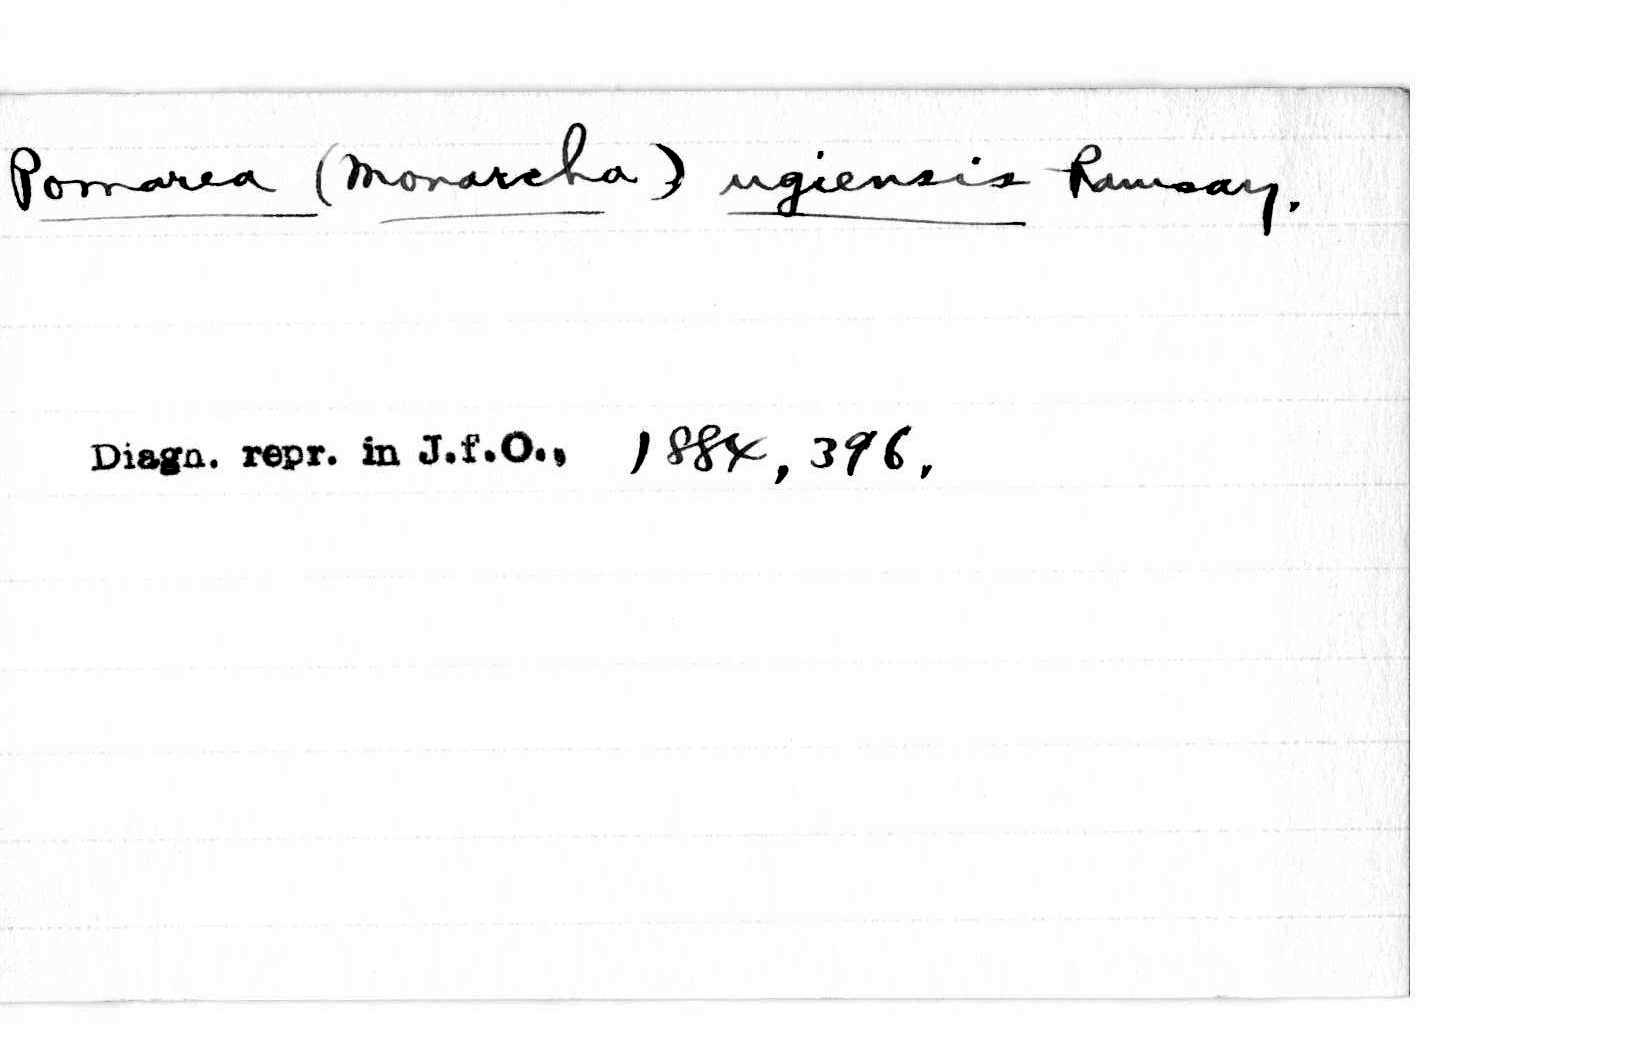 Pomarea (Monarcha) ugiensis Ramsay.
Diagn. repr. in J.f.O., 1884, 396,